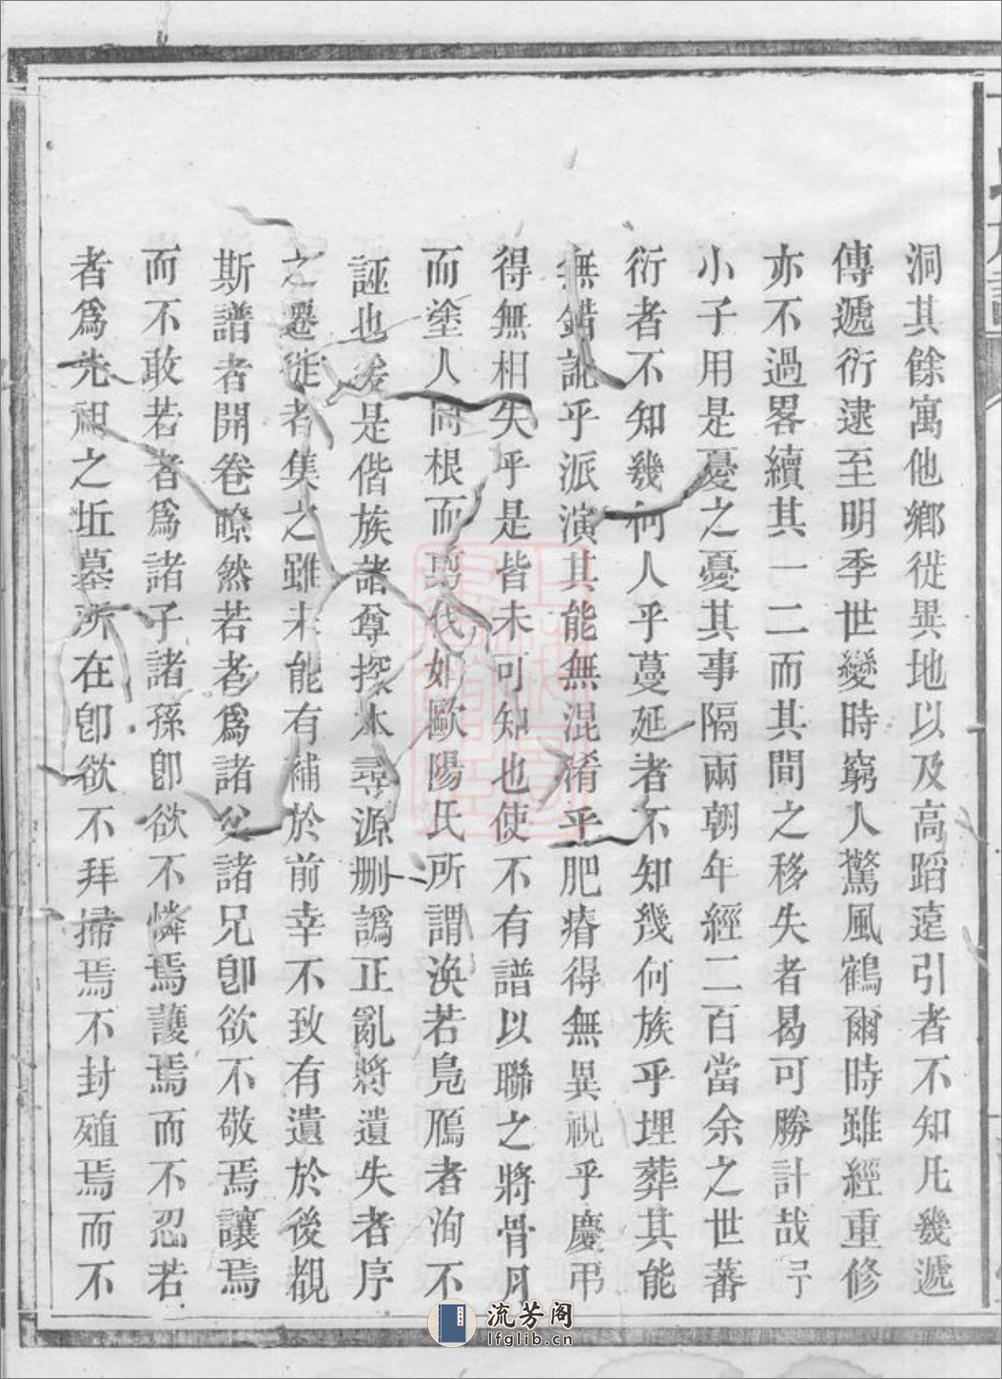 洞其餘寓他鄉徙異地以及高蹈遠引者不知凡幾遞
傳遞衍逮至明季世變時窮人驚風鶴爾時雖經重修
亦不過畧續其一二而其間之移失者曷可勝計哉予
小子用是憂之憂其事隔兩朝年經二百當余之世蕃
衍者不知幾何人乎蔓延者不知幾何族乎埋葬其能
無錯訛乎派演其能無混淆乎肥瘠得無異視乎慶弔
得無相失乎是皆未可知也使不有譜以聯之將骨月
而塗人同根而剪伐如歐陽氏所謂渙若鳧鴈者洵不
誣也爰是偕族諸尊探本尋源刪譌正亂將遺失者序
之遷徙者集之雖未能有補於前幸不致有遺於後覩
斯譜者開卷瞭然若者爲諸父諸兄卽欲不敬焉讓焉
而不敢若者爲諸子諸孫卽欲不憐焉護焉而不忍若
者爲先祖之坵墓所在卽欲不拜掃焉不封殖焉而不
流芳阁
lfglib.cn